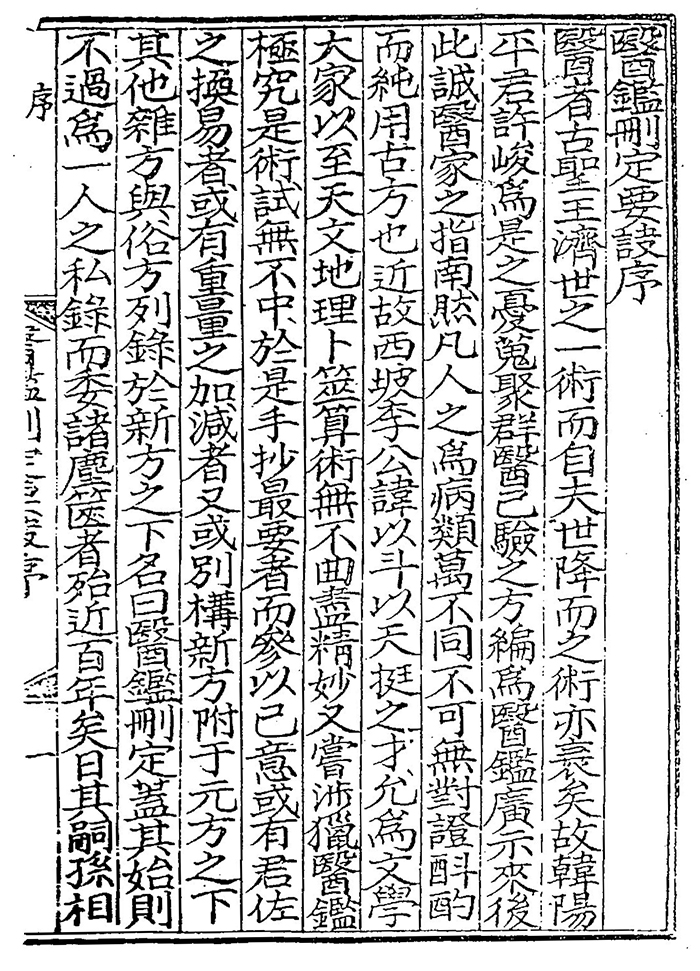 醫鑑刪定要訣序
醫者古聖王濟世之一術而自夫世降而之術亦衰矣故韓陽
平君許峻爲是之憂蒐聚群醫己驗之方編爲醫鑑廣示來後
此誠醫家之指南然凡人之爲病類萬不同不可無對證斟酌
而純用古方也近故西坡李公諱以斗以天挺之才允爲文學
大家以至天文地理卜筮算術無不曲盡精妙又嘗涉獵醫鑑
極究是術試無不中於是手抄最要者而參以己意或有君佐
之換易者或有重量之加減者又或別構新方附于元方之下
其他雜方與俗方列錄於新方之下名曰醫鑑刪定蓋其始則
不過爲一人之私錄而委諸塵篋者殆近百年矣日其嗣孫相
序
醫鑑刪定要訣序
一